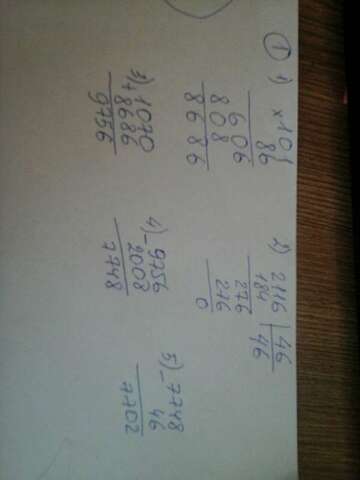 ① 1) × 101
86
606
808
8686
2) 2116 | 46
184 | 46
276
276
0
3) + 1070
8686
9756
4) - 9756
2008
7748
5) - 7748
46
7702